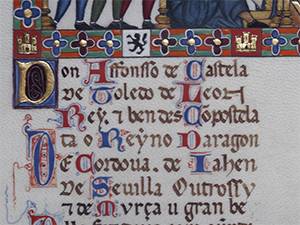 Don Affonsso de Castela
de Toledo de Leon
Rey e ben des Compostela
ta o Reyno Daragon
De Cordova de Iahen
de Sevilla Outrossy
e de Murça u gran be